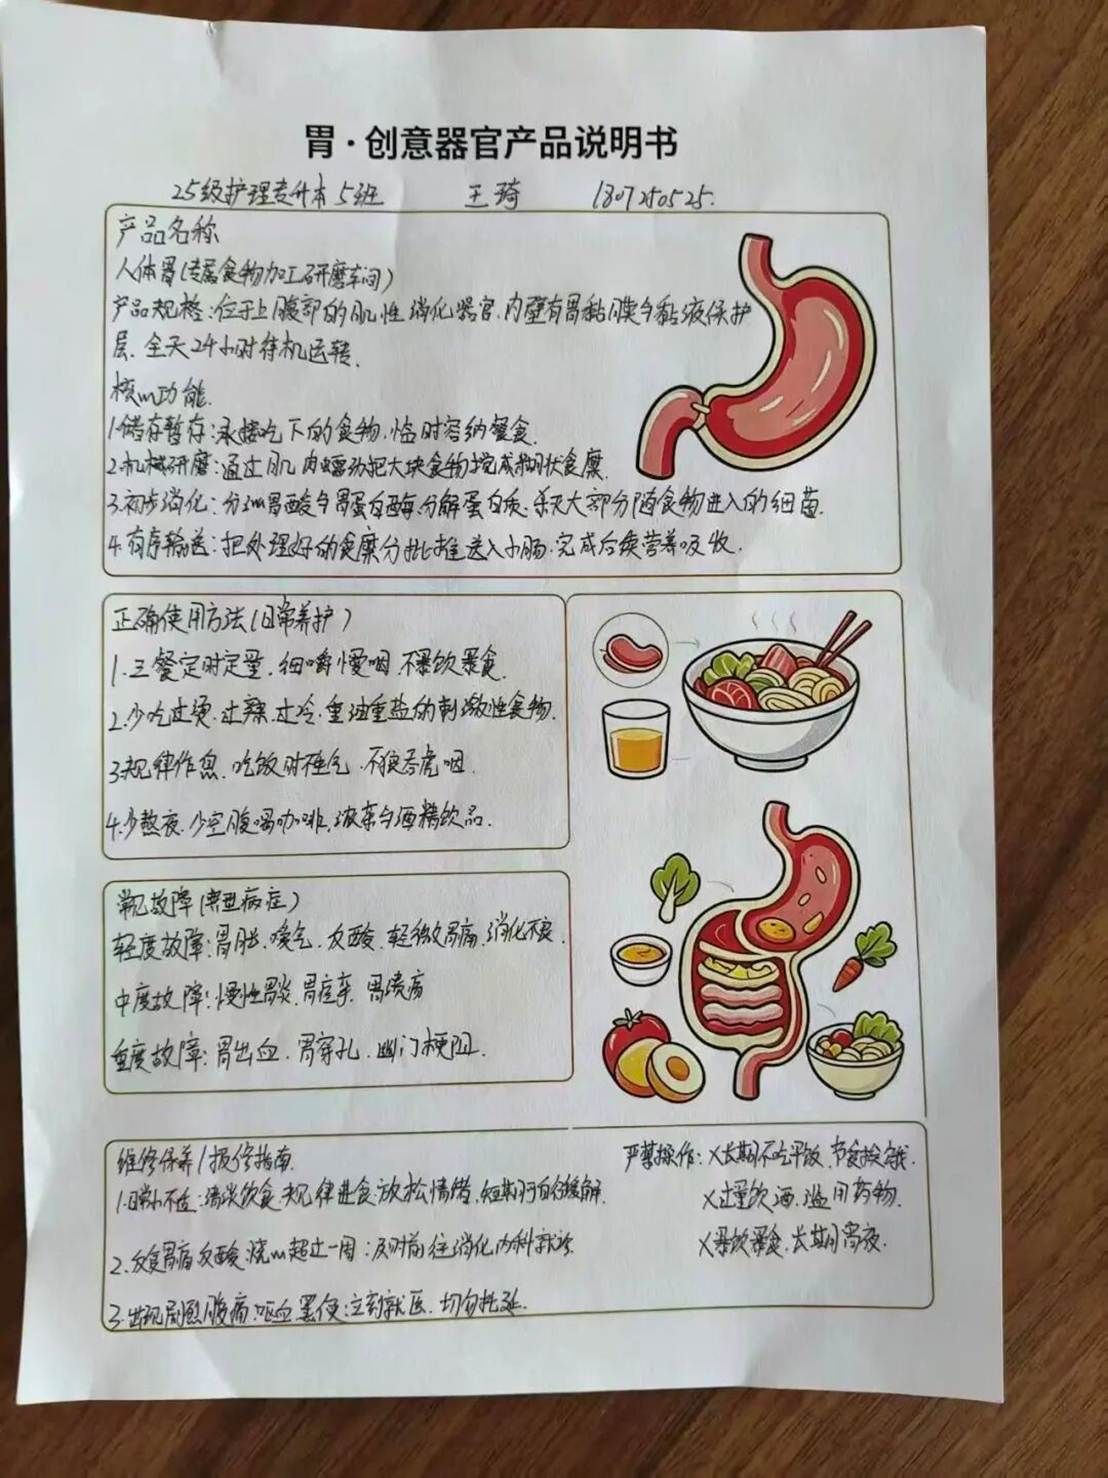 胃·创意器官产品说明书
25级护理专升本5班 王琦 1807250525.
产品名称
人体胃(专属食物加工研磨车间)
产品规格:位于上腹部的肌性消化器官,内壁有胃黏膜与黏液保护
层.全天24小时待机运转.
核心功能.
1.储存暂存:承接吃下的食物,临时容纳餐食.
2.机械研磨:通过肌肉蠕动把大块食物搅成糊状食糜.
3.初步消化:分泌胃酸与胃蛋白酶,分解蛋白质.杀灭大部分随食物进入的细菌.
4.有序输送:把处理好的食糜分批推送入小肠.完成后续营养吸收.
正确使用方法(日常养护)
1.三餐定时定量.细嚼慢咽.不暴饮暴食.
2.少吃过烫.过辣.过冷.重油重盐的刺激性食物.
3.规律作息.吃饭时不生气.不狼吞虎咽.
4.少熬夜.少空腹喝咖啡,浓茶与酒精饮品.
常见故障(典型病症)
轻度故障:胃胀.嗳气.反酸.轻微胃痛,消化不良.
中度故障:慢性胃炎.胃痉挛.胃溃疡
重度故障:胃出血.胃穿孔.幽门梗阻.
维修保养/报修指南.
1.日常小不适:清淡饮食.规律进食.放松情绪.短期可自行缓解.
2.反复胃痛.反酸.烧心超过一周:及时前往消化内科就诊.
3.出现剧烈腹痛.呕血.黑便:立刻就医.切勿拖延.
严禁操作:×长期不吃早饭.节食挨饿.
×过量饮酒.滥用药物.
×暴饮暴食.长期宵夜.